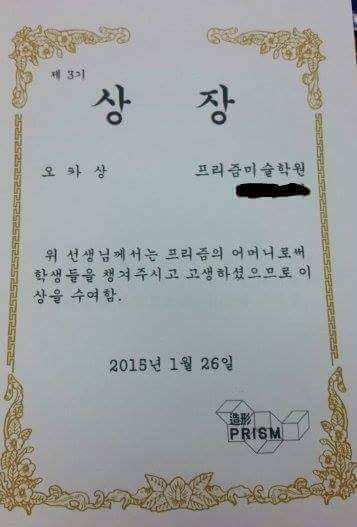 제 3기
상 장
오카상 프리즘미술학원
위 선생님께서는 프리즘의 어머니로써
학생들을 챙겨주시고 고생하셨으므로 이
상을 수여함.
2015년 1월 26일
造形
PRISM